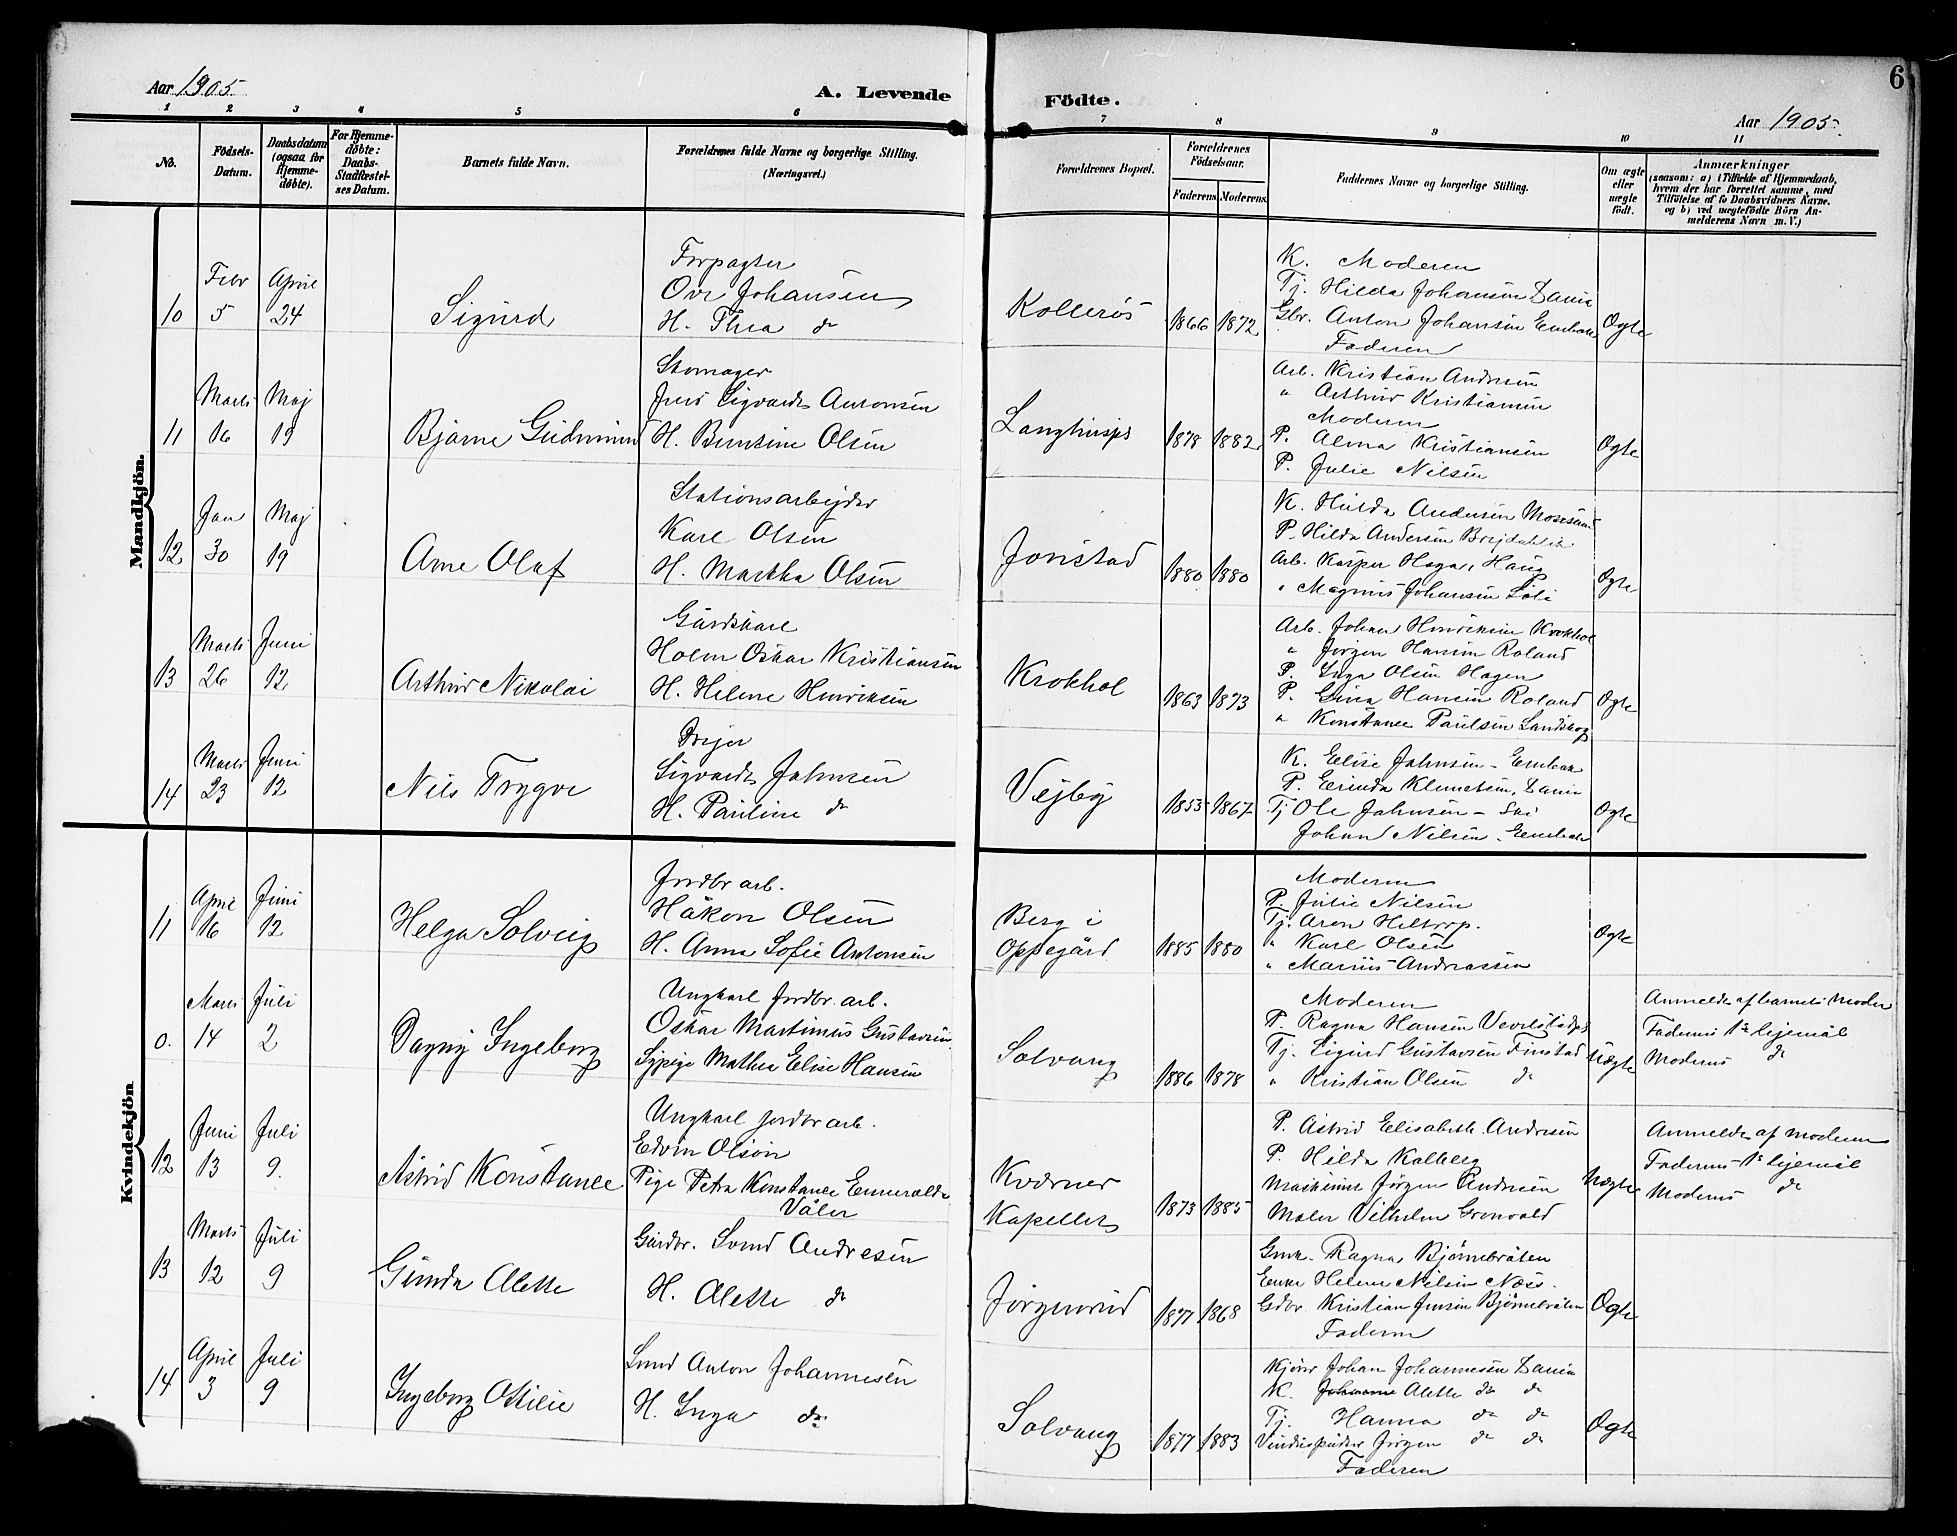 6
Aar 1905.
A. Levende
Födte.
Aar 1905.
1 2 3 4 5 6 7 8 9 10 11
No.
Födsels-
Datum.
Daabsdatum
(ogsaa for
Hjemme-
døbte).
For Hjemme-
døbte:
Daabs-
Stadfæstel-
ses Datum.
Barnets fulde Navn.
Forældrenes fulde Navne og borgerlige Stilling.
(Næringsvei.)
Forældrenes Bopæl.
Forældrenes
Födselsaar.
Faderens. Moderens.
Faddernes Navne og borgerlige Stilling.
Om ægte
eller
uægte
født.
Anmærkninger
(saasom: a) i Tilfælde af Hjemmedaab,
hvem der har forrettet samme, med
Tilføielse af to Daabsvidners Navne.
og b) ved uægtefödte Börn An-
melderens Navn m. V.)
Mandkjön.
10
Febr
5
April
24
Sigurd
Forpagter
Ove Johansen
H. Thea do
Kollerøs
1866 1872
K. Moderen
Tj. Hilda Johansen
Gbr. Anton Johansen
Faderen
Ægte
11
Marts
16
Maj
19
Bjarne Gudmund
Skomager
Jens Sigvardt Aronsen
H. Berntine Olsen
Langhuspl
1878 1882
Arb. Kristian Andersen
" Arthur Kristiansen
Moderen
P. Alma Kristiansen
P. Julie Nilsen
Ægte
12
Jan
30
Maj
19
Arne Olaf
Stationsarbejder
Karl Olsen
H. Martha Olsen
Jonstad
1880 1880
K. Hulda Andersen
P. Hilda Andersen
Arb. Kasper Haga, Haug
" Magnus Johansen
Ægte
13
Marts
26
Juni
12
Arthur Nikolai
Gårdskarl
Holm Oskar Kristiansen
H. Helene Henriksen
Krokhol
1863 1873
Arb. Johan Henriksen Krokhol
" Jørgen Hansen Roland
P. Inga Olsen Hagen
P. Gina Hansen Roland
" Konstance Paulsen
Ægte
14
Marts
23
Juni
12
Nils Trygve
Drejer
Sigvardt Jahnsen
H. Pauline do
Vejby
1853 1867
K. Elise Jahnsen -
P. Klemetsen,
Tj Ole Jahnsen - Ski
Johan Nilsen -
Ægte
Kvindekjön
11
April
16
Juni
12
Helga Solveig
Jordbr arb.
Håkon Olsen
H. Anna Sofie Antonsen
Berg i
Oppegård
1885 1880
Moderen
P. Julie Nilsen
Tj. Aron Hiltorp.
" Karl Olsen
" Marius Andreassen
Ægte
0.
Marts
14
Juli
2
Dagny Ingeborg
Ungkarl Jordbr. arb.
Oskar Martinius Gustavsen
Sypige Mathea Elise Hansen
Solvang
1886 1878
Moderen
P. Ragna Hansen
Tj. Sigurd Gustavsen Finstad
" Kristian Olsen do
Uægte
Anmeldt af barnets Moder
Faderens 1ste lejemål
Moderens do
12
Juni
13
Juli
9.
Astrid Konstance
Ungkarl jordbr arb.
Edvin Olsen
Pige Petra Konstance Esmeralda
Våler
Kværner
Kapellet
1873 1885
P. Astrid Elisabeth Andresen
P. Hilda Kolberg
Maskinist Jørgen Andresen
Maler Vilhelm Gronvold
Uægte
Anmeldt af moderen
Faderens 1ste lejemål
Moderens do
13
Marts
12
Juli
9
Gunda Alette
Gårdbr. Svend Andresen
H. Alette do
Jørgenrud
1877 1868
Gmk. Ragna Bjørnebråten
Enke Helene Nilsen Næss.
Gdbr. Kristian Jensen Bjørnebråten
Faderen
Ægte
14
April
3
Juli
9
Ingeborg Otilie
Smed Anton Johannesen
H. Inga do
Solvang
1877 1883
Johan Johannesen
K. Johanne Alette do do
Tj. Hanna do do
Vinduspudser Jörgen do do
Faderen
Ægte